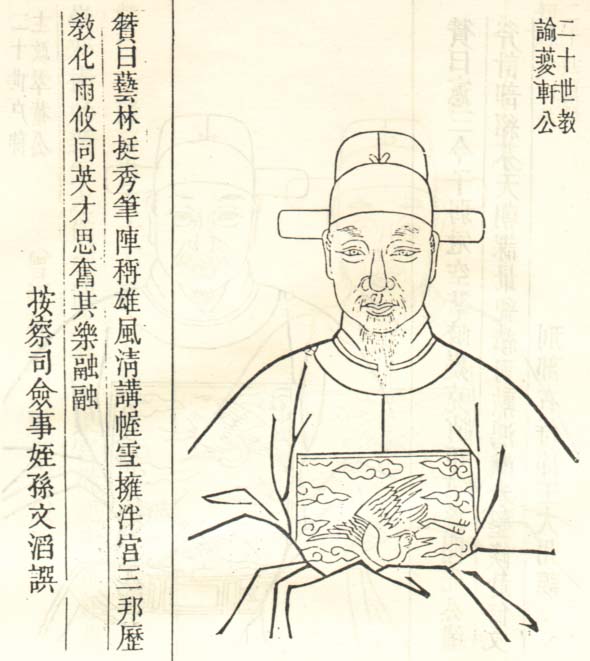 二十世教
諭蘷軒公
贊曰藝林挺秀筆陣稱雄風清講幄雪擁泮宮三邦歷
敎化雨攸同英才思奮其樂融融
按察司僉事姪孫文滔譔